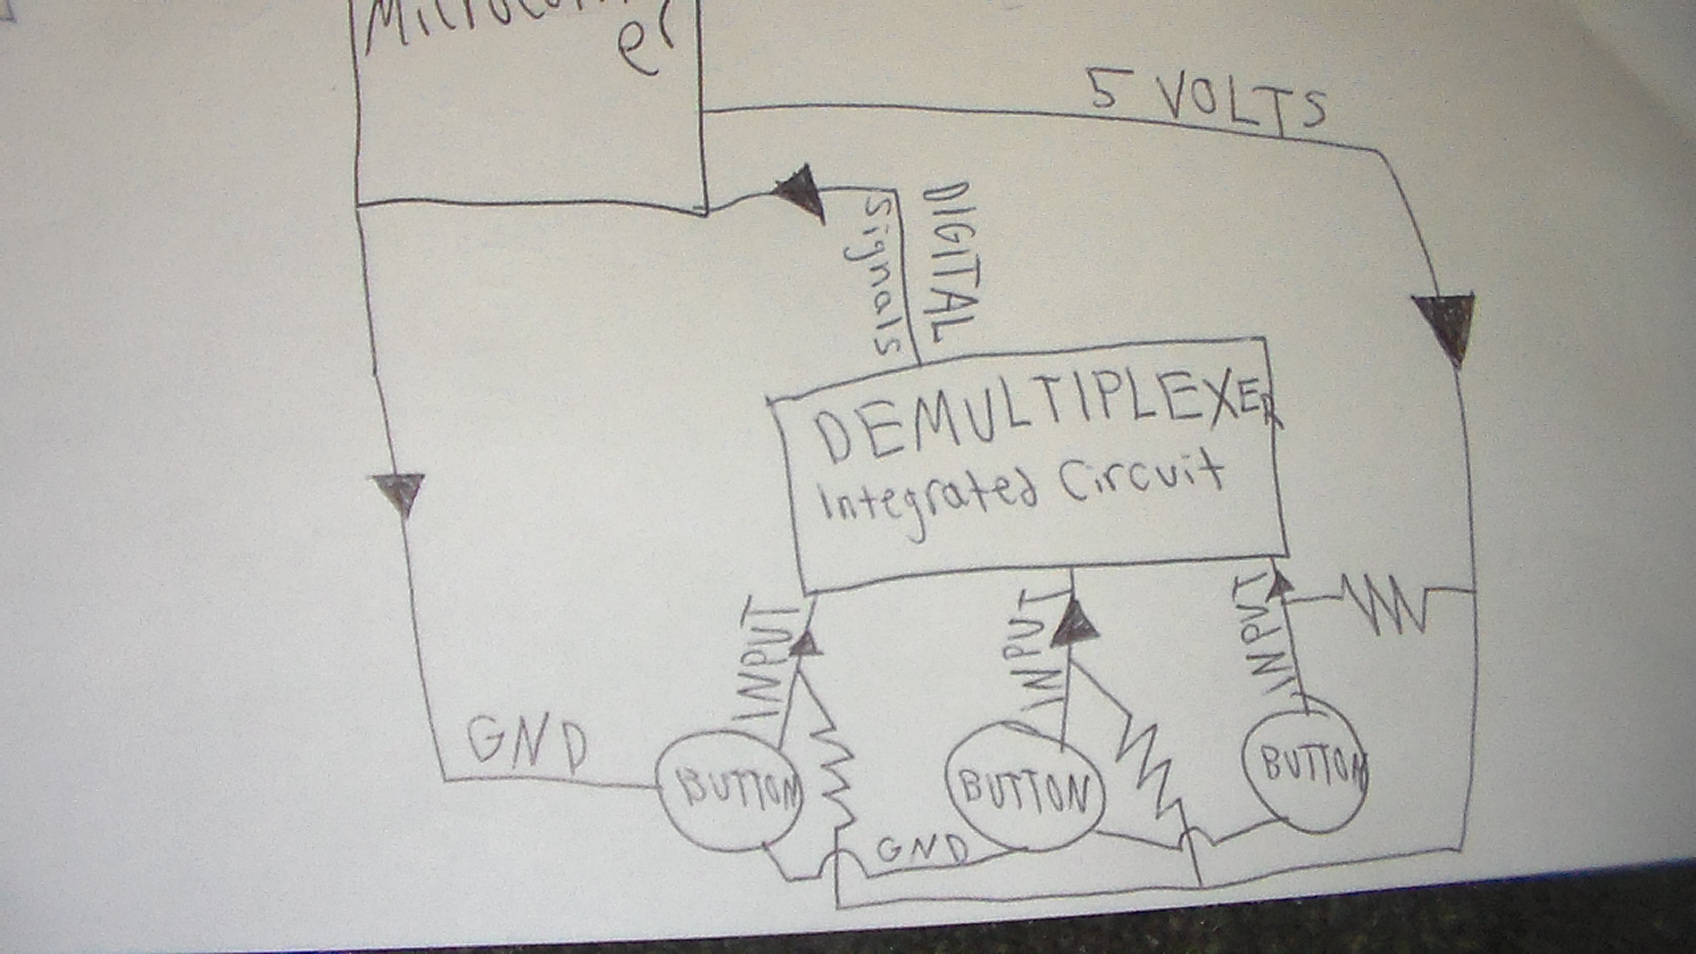 er
5 VOLTS
DIGITAL
Signals
DEMULTIPLEXER
Integrated Circuit
INPUT
INPUT
INPUT
GND
BUTTON
BUTTON
BUTTON
GND